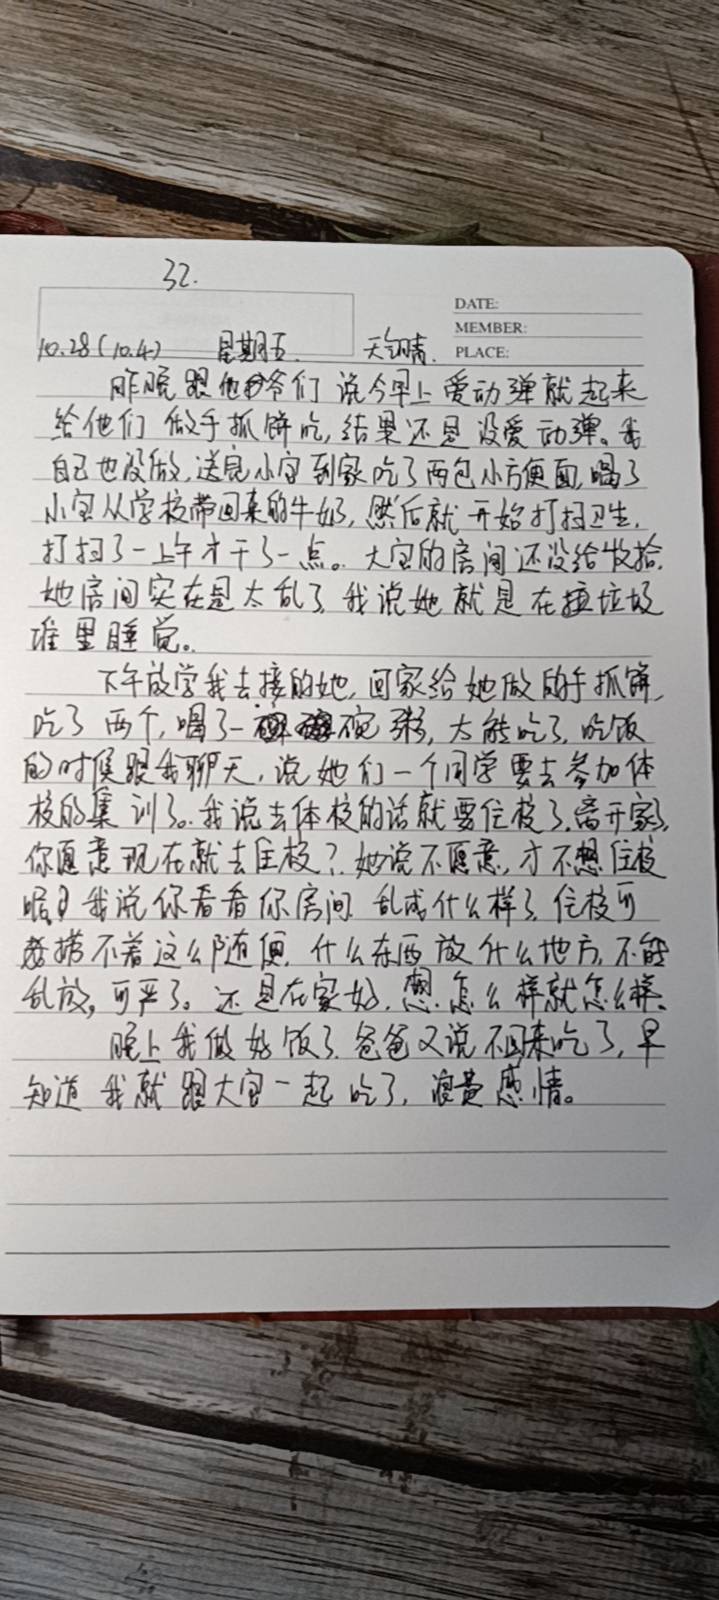 32.
DATE:
MEMBER:
PLACE:
10.28(10.4) 星期五. 天气晴.
昨晚跟他爷们说今早上爱动弹就起来
给他们做手抓饼吃,结果还是没爱动弹。我
自己也没做,送完小宝到家吃了两包小方便面,喝了
小宝从学校带回来的牛奶,然后就开始打扫卫生,
打扫了一上午才干了一点。大宝的房间还没给收拾,
她房间实在是太乱了,我说她就是在垃圾
堆里睡觉。
下午放学我去接的她,回家给她做的手抓饼,
吃了两个,喝了一碗粥,太能吃了,吃饭
的时候跟我聊天,说她们一个同学要去参加体
校的集训了。我说去体校的话就要住校了,离开家了,
你愿意现在就去住校?她说不愿意,才不想住校
呢。我说你看看你房间乱成什么样了,住校可
捞不着这么随便,什么东西放什么地方,不能
乱放,可严了。还是在家好,想怎么样就怎么样。
晚上我做好饭了,爸爸又说不回来吃了,早
知道我就跟大宝一起吃了,浪费感情。